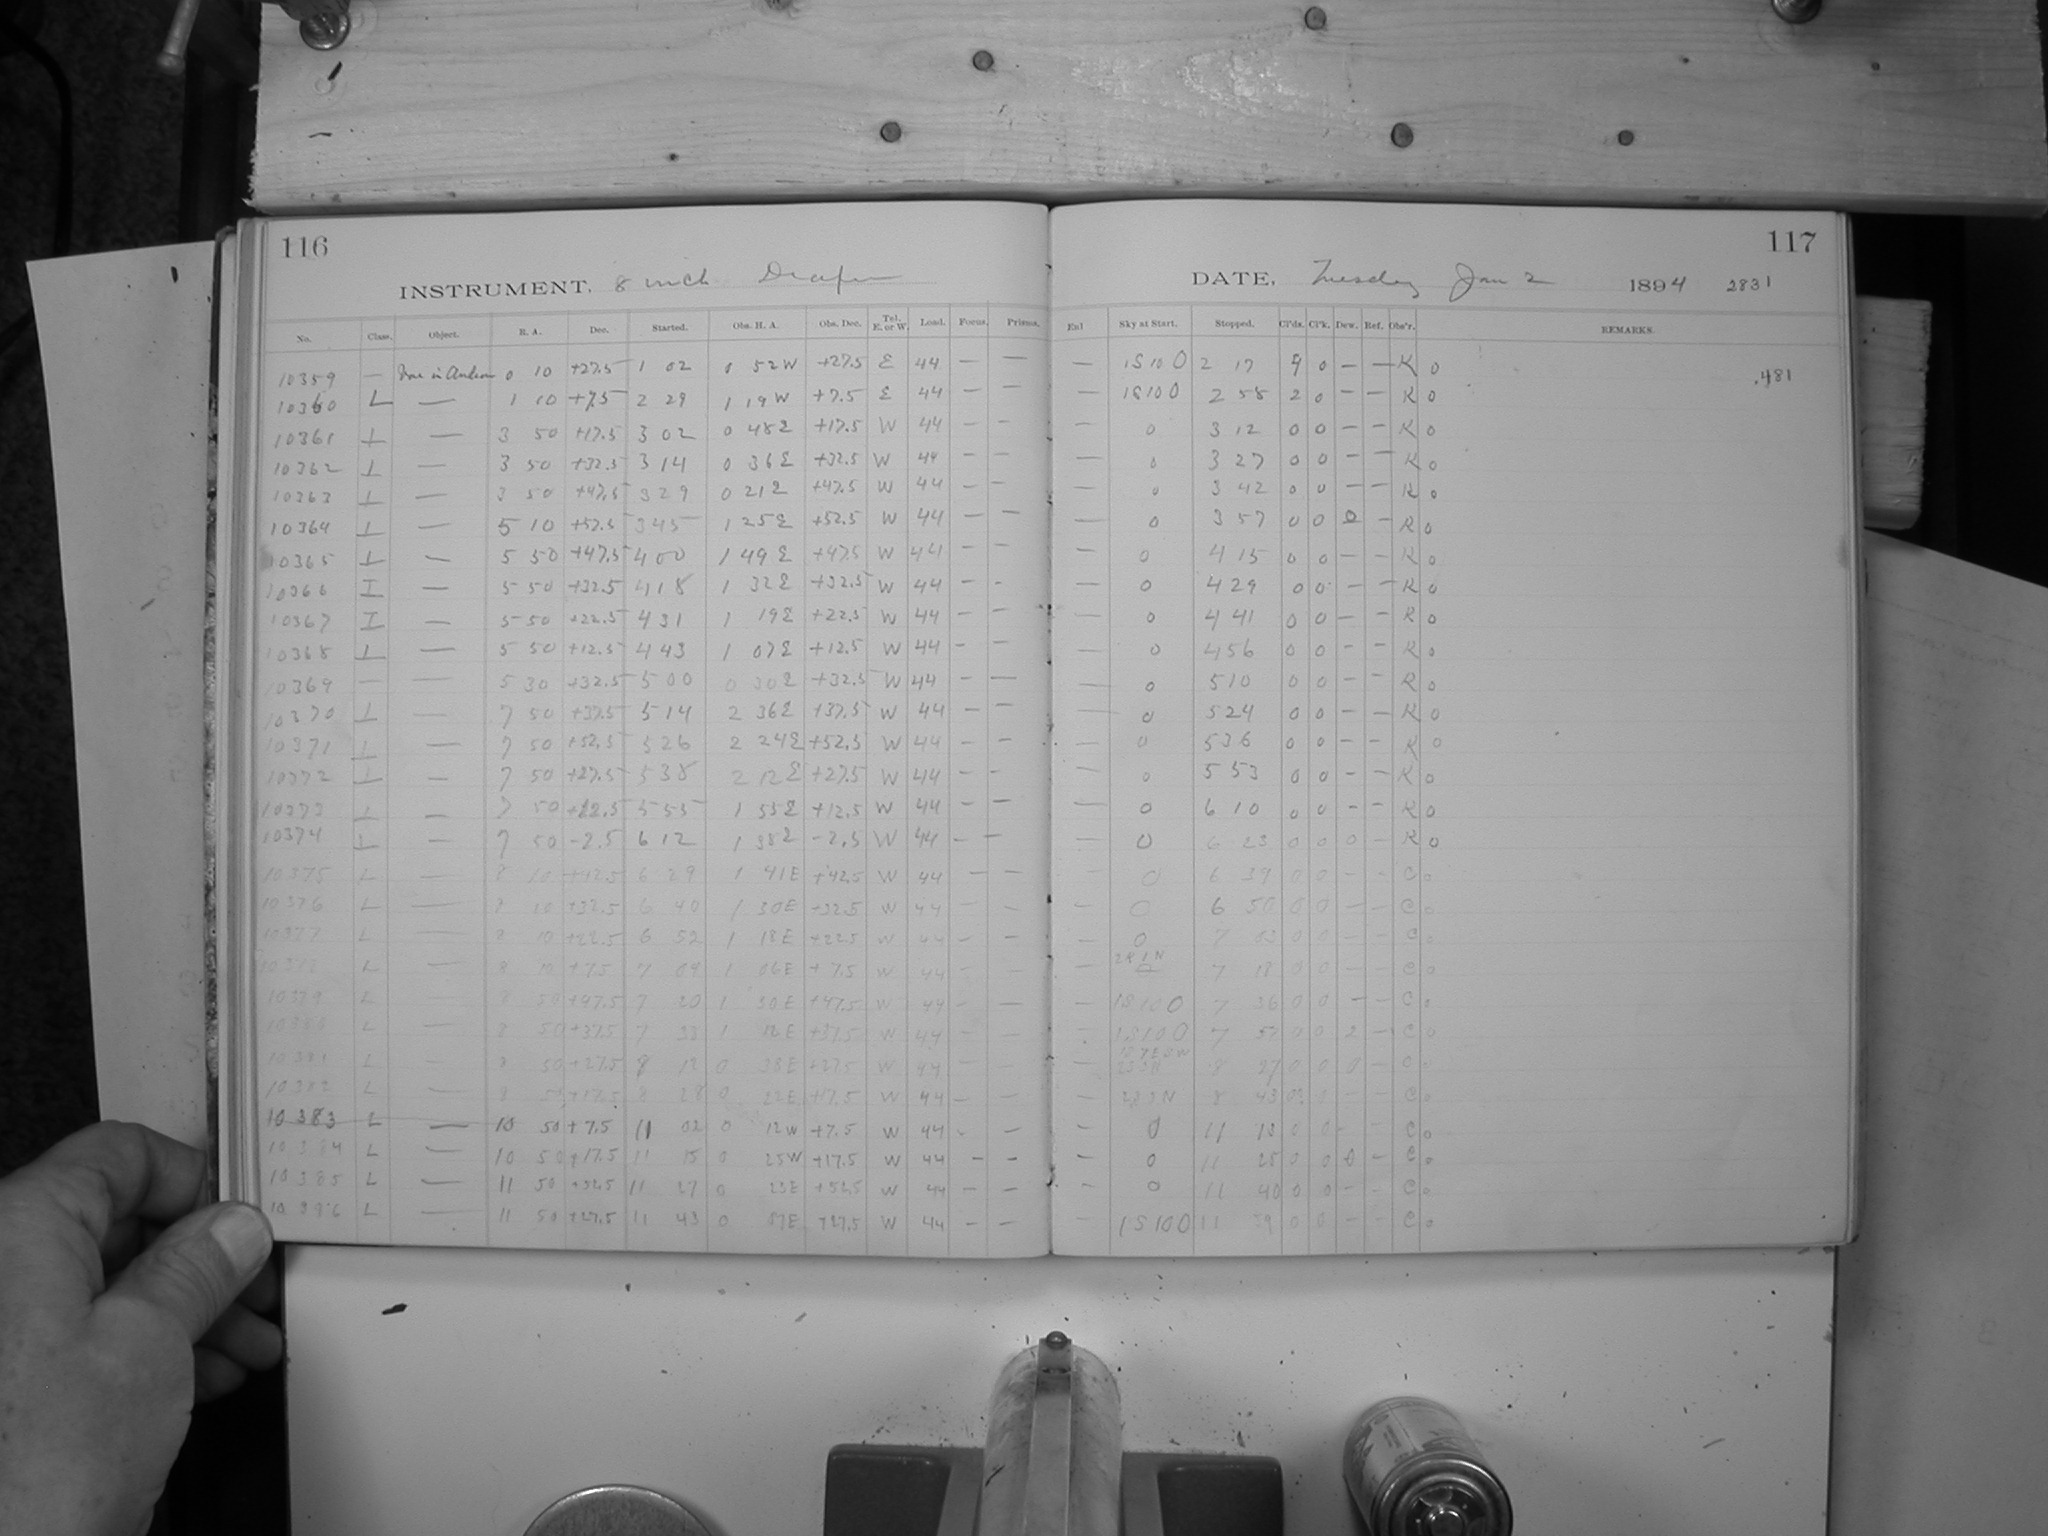 116
117
INSTRUMENT. 8 inch Draper
DATE, Tuesday Jan 2 1894 2831
No. Class. Object. R. A. Dec. Started. Obs. H. A. Obs. Dec. Tel. E. or W. Load. Focus. Prisms. Exl Sky at Start. Stopped. Cl'ds. Cl'k. Dew. Ref. Obs'r. REMARKS.
10359 — in 0 10 +27.5 1 02 0 52W +27.5 E 44 — — — 1S100 2 17 9 0 — — K 0 .481
10360 L — 1 10 +7.5 2 29 1 19W +7.5 E 44 — — — 1S100 2 58 2 0 — — K 0
10361 L — 3 50 +17.5 3 02 0 48E +17.5 W 44 — — — 0 3 12 0 0 — — K 0
10362 L — 3 50 +32.5 3 14 0 36E +32.5 W 44 — — — 0 3 27 0 0 — — K 0
10363 L — 3 50 +47.5 3 29 0 21E +47.5 W 44 — — — 0 3 42 0 0 — — K 0
10364 L — 5 10 +52.5 3 45 1 25E +52.5 W 44 — — — 0 3 57 0 0 0 — K 0
10365 L — 5 50 +47.5 4 00 1 49E +47.5 W 44 — — — 0 4 15 0 0 — — K 0
10366 I — 5 50 +32.5 4 18 1 32E +32.5 W 44 — — — 0 4 29 0 0 — — K 0
10367 I — 5 50 +22.5 4 31 1 19E +22.5 W 44 — — — 0 4 41 0 0 — — K 0
10368 L — 5 50 +12.5 4 43 1 07E +12.5 W 44 — — 0 4 56 0 0 — — K 0
10369 — — 5 30 +32.5 5 00 0 30E +32.5 W 44 — — — 0 5 10 0 0 — — K 0
10370 L — 7 50 +37.5 5 14 2 36E +37.5 W 44 — — — 0 5 24 0 0 — — K 0
10371 L — 7 50 +52.5 5 26 2 24E +52.5 W 44 — — — 0 5 36 0 0 — — K 0
10372 L — 7 50 +27.5 5 38 2 12E +27.5 W 44 — — — 0 5 53 0 0 — — K 0
10373 L — 7 50 +12.5 5 55 1 55E +12.5 W 44 — — — 0 6 10 0 0 — — K 0
10374 L — 7 50 -2.5 6 12 1 38E -2.5 W 44 — — — 0 6 23 0 0 0 — K 0
10375 L — 8 10 +42.5 6 29 1 41E +42.5 W 44 — — — 0 6 39 0 0 — — C 0
10376 L — 8 10 +32.5 6 40 1 30E +32.5 W 44 — — — 0 6 50 0 0 — — C 0
10377 L — 8 10 +22.5 6 52 1 18E +22.5 W 44 — — — 0 7 03 0 0 — — C 0
10378 L — 8 10 +7.5 7 04 1 06E +7.5 W 44 — — — 7 18 0 0 — — C 0
10379 L — 8 50 +47.5 7 20 1 30E +47.5 W 44 — — — 1S100 7 36 0 0 — — C 0
10380 L — 8 50 +37.5 7 38 1 12E +37.5 W 44 — — — 1S100 7 0 0 2 — C 0
10381 L — 8 50 +27.5 8 12 0 38E +27.5 W 44 — — — 8 27 0 0 0 — C 0
10382 L — 8 50 +17.5 8 28 0 22E +17.5 W 44 — — — 8 43 — — C 0
10383 L — 10 50 +7.5 11 02 0 12W +7.5 W 44 — — — 0 11 13 0 0 — — C 0
10384 L — 10 50 +17.5 11 15 0 25W +17.5 W 44 — — — 0 11 25 0 0 0 — C 0
10385 L — 11 50 +52.5 11 27 0 23E +52.5 W 44 — — — 0 11 40 0 0 — — C 0
10386 L — 11 50 +27.5 11 43 0 07E +27.5 W 44 — — — 1S100 11 59 0 0 — — C 0